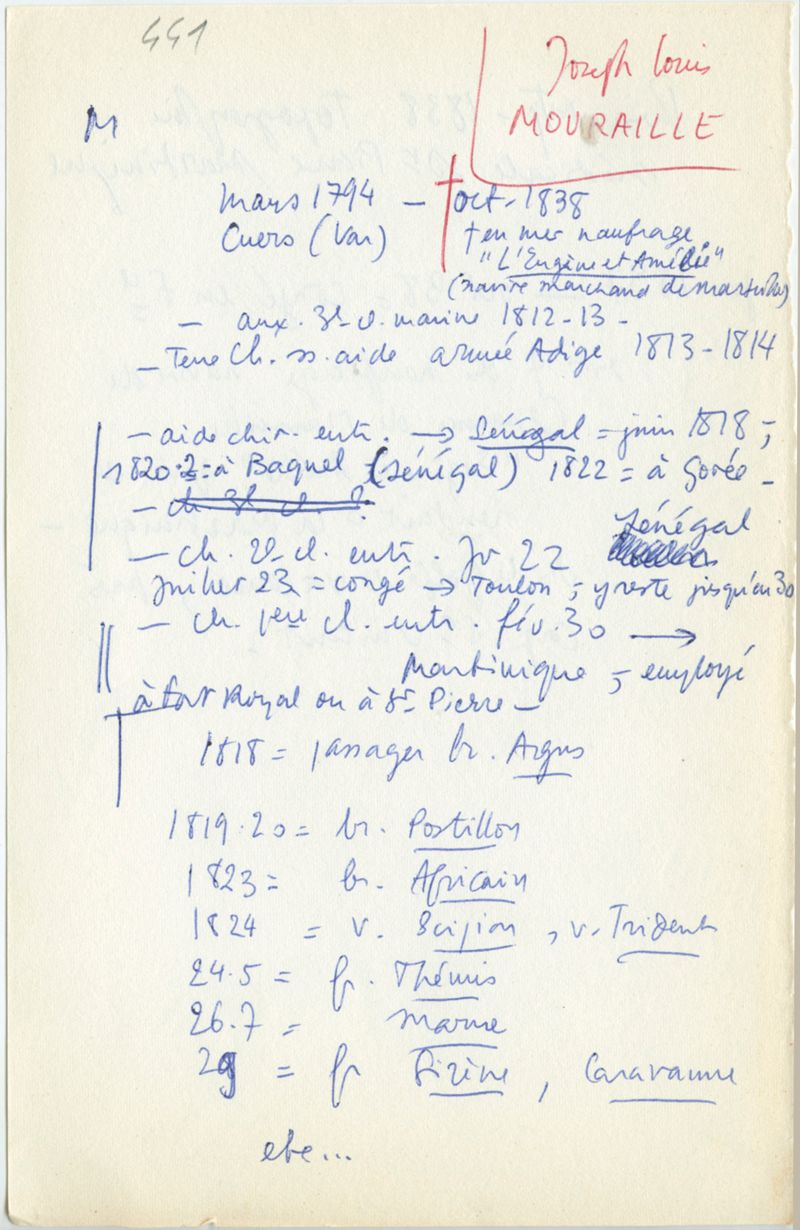 441
Joseph Louis
MOURAILLE
M
mars 1794 - † oct. 1838
Cuers (Var)
† en mer naufrage
"L'Eugène et Amélie"
(navire marchand de Marseille)
- aux. 3e cl. marine 1812-13 -
- Ch. ss. aide armée Adige 1813-1814
- aide chir. entr. → Sénégal = juin 1818 ;
1820.2 = à Baquel (Sénégal) 1822 = à Gorée -
- ch. 2e cl. entr. Jr 22 Sénégal
Juillet 23 = congé → Toulon ; y reste jusqu'en 30
- ch. 1ère cl. entr. fév. 30 →
Martinique ; employé
à Fort Royal ou à St Pierre -
1818 = passager br. Argus
1819.20 = br. Postillon
1823 = br. Africain
1824 = v. Scipion, v. Trident
24.5 = fr. Thémis
26.7 = Marne
29 = fr Sirène, Caravanne
etc...